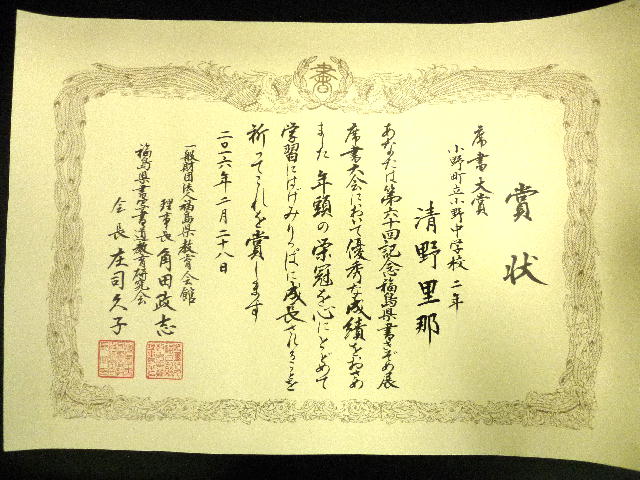 書
賞状
席書大賞
小野町立小野中学校 二年
清野里那
あなたは第六十回記念福島県書きぞめ展
席書大会において優秀な成績をおさめ
ました 年頭の栄冠を心にとどめて
学習にはげみりっぱに成長されることを
祈ってこれを賞します
二〇一六年二月二十八日
一般財団法人福島県教育会館
理事長 角田政志
福島県書写書道教育研究会
会長 庄司久子